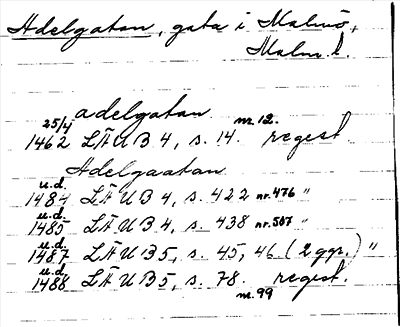 Adelgatan, gata i Malmö,
Malm. l.
adelgatan
25/4 nr. 12.
1462 LÄUB4, s. 14. regest
Adelgaatan
u.d.
1484 LÄUB4, s. 422 nr. 476 "
u.d.
1485 LÄUB4, s. 438 nr. 507 "
u.d.
1487 LÄUB5, s. 45, 46 (2 ggr.) "
u.d.
1488 LÄUB5, s. 78. regest.
nr. 99